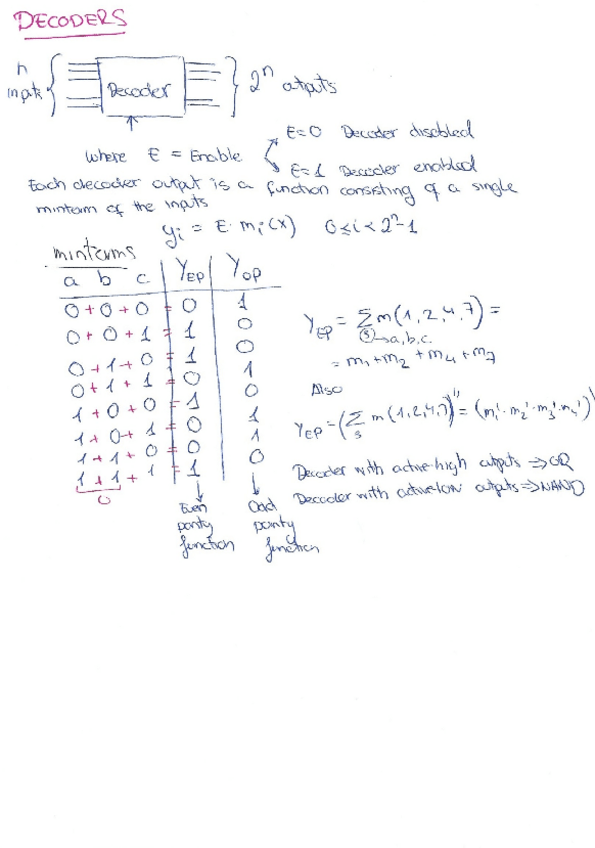 DECODERS
n
inputs
Decoder
2^n outputs
E=0 Decoder disabled
where E = Enable
E=1 Decoder enabled
Each decoder output is a function consisting of a single
minterm of the inputs
yi = E · mi(x) 0≤i<2^n-1
minterms
a b c YEP YOP
0+0+0=0 1
0+0+1=1 0
0+1+0=1 0
0+1+1=0 1
1+0+0=1 0
1+0+1=0 1
1+1+0=0 1
1+1+1=1 0
0
Even
parity
function
Odd
parity
function
YEP = Σm(1,2,4,7) =
3→a,b,c.
= m1+m2+m4+m7
Also
YEP=(Σ m(1,2,4,7))''=(m1'·m2'·m3'·
3
Decoder with active-high outputs ⇒OR
Decoder with active-low outputs ⇒NAND